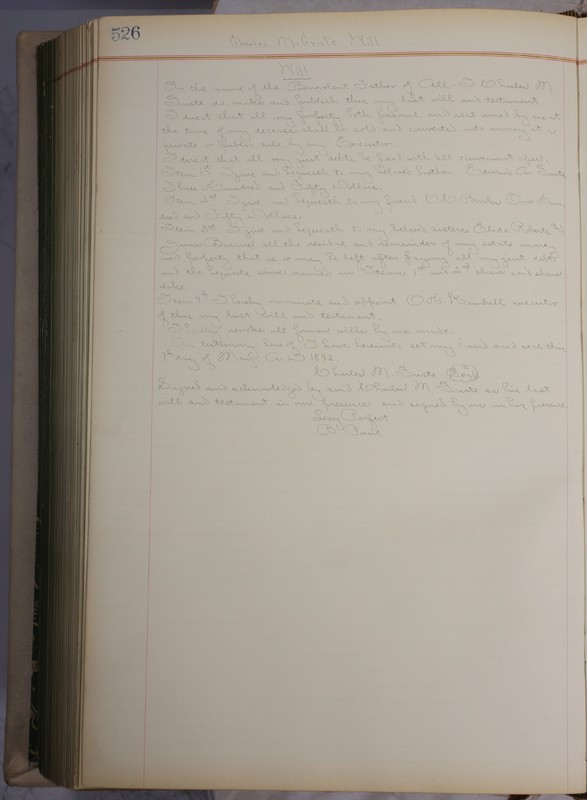 526
Charles M. Will
Will
In the name of the Benevolent Father of All. I Charles M
do make and publish this my last will and testament
I direct that all my property both personal and real owned by me at
the time of my decease shall be sold and converted into money at a
private or public sale by my Executor.
I direct that all my just debts be paid with all convenient speed.
Item 1st I give and bequeath to my beloved brother Edward A.
Three Hundred and Fifty Dollars.
Item 2nd I give and bequeath to my friend One Hun
dred and Fifty Dollars.
Item 3rd I give and bequeath to my beloved sisters Eliza Roberts and
all the residue and remainder of my estate money
and property that is or may be left after paying all my just debts
and the bequests above named in Items 1st and 2nd share and share
alike
Item 4th I hereby nominate and appoint O. H. Kimball executor
of this my last will and testament.
I hereby revoke all former wills by me made.
In testimony hereof I have hereunto set my hand and seal this
1st day of May A.D. 1892.
Charles M. Seal
Signed and acknowledged by said Charles M. as his last
will and testament in our presence and signed by us in his presence
Perfect
B Paul